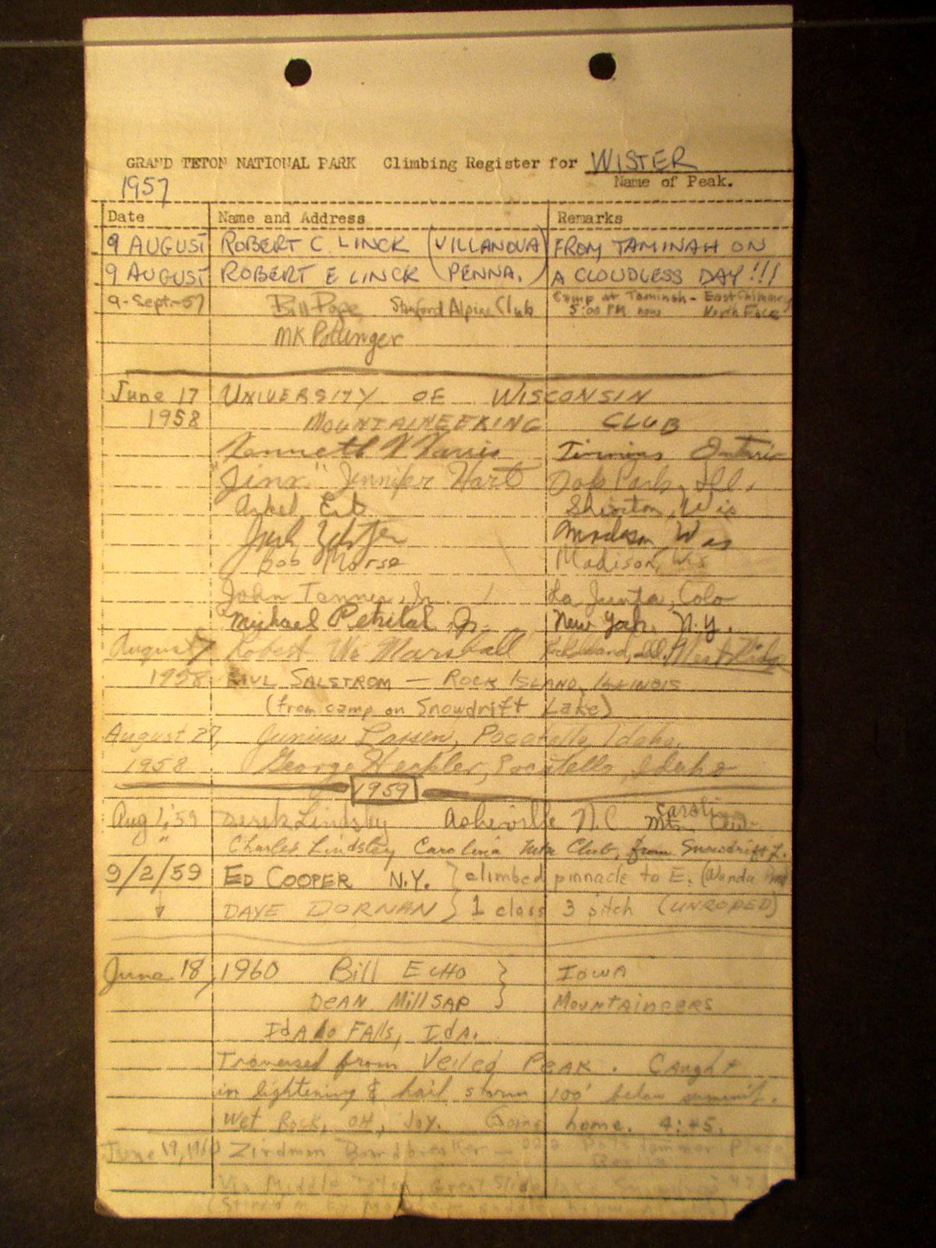 GRAND TETON NATIONAL PARK Climbing Register for WISTER
1957 Name of Peak.
Date Name and Address Remarks
9 AUGUST ROBERT C. LINCK (VILLANOVA) FROM TAMINAH ON
9 AUGUST ROBERT E LINCK (PENNA.) A CLOUDLESS DAY!!!
9-Sept-57 Bill Pope Stanford Alpine Club Camp at Taminah - East Chimney
5:00 PM now North Face
MK Pottenger
June 17 UNIVERSITY OF WISCONSIN
1958 MOUNTAINEERING CLUB
Kenneth Timmins Ontario
"Jinx" Jennifer Hart Oak Park, Ill.
Wis
Madison Wis
Bob Morse Madison, Wis
John Tanner, Jr. La Junta, Colo
Michael Petrilak Jr. New York, N.Y.
August 7 Robert W. Marshall
1958 PAUL SALSTROM — ROCK ISLAND, ILLINOIS
(from camp on Snowdrift Lake)
August 27, Larsen, Pocatello, Idaho,
1958 George Pocatello, Idaho
1959
Aug 1, '59 Derek Lindsley Asheville N.C. Carolina Mt. Club
" Charles Lindsley Carolina Mtn Club, from Snowdrift L.
9/2/59 ED COOPER N.Y. } climbed pinnacle to E. (Wanda
DAVE DORNAN } 1 class 3 pitch (UNROPED)
June 18, 1960 Bill ECHO } IOWA
DEAN MILLSAP MOUNTAINEERS
IDAHO FALLS, IDA.
Traversed from Veiled Peak. Caught
in lightening & hail storm 100' below summit.
Wet Rock, OH, Joy. Going home. 4:45.
June 19, 1960
Via Middle Teton